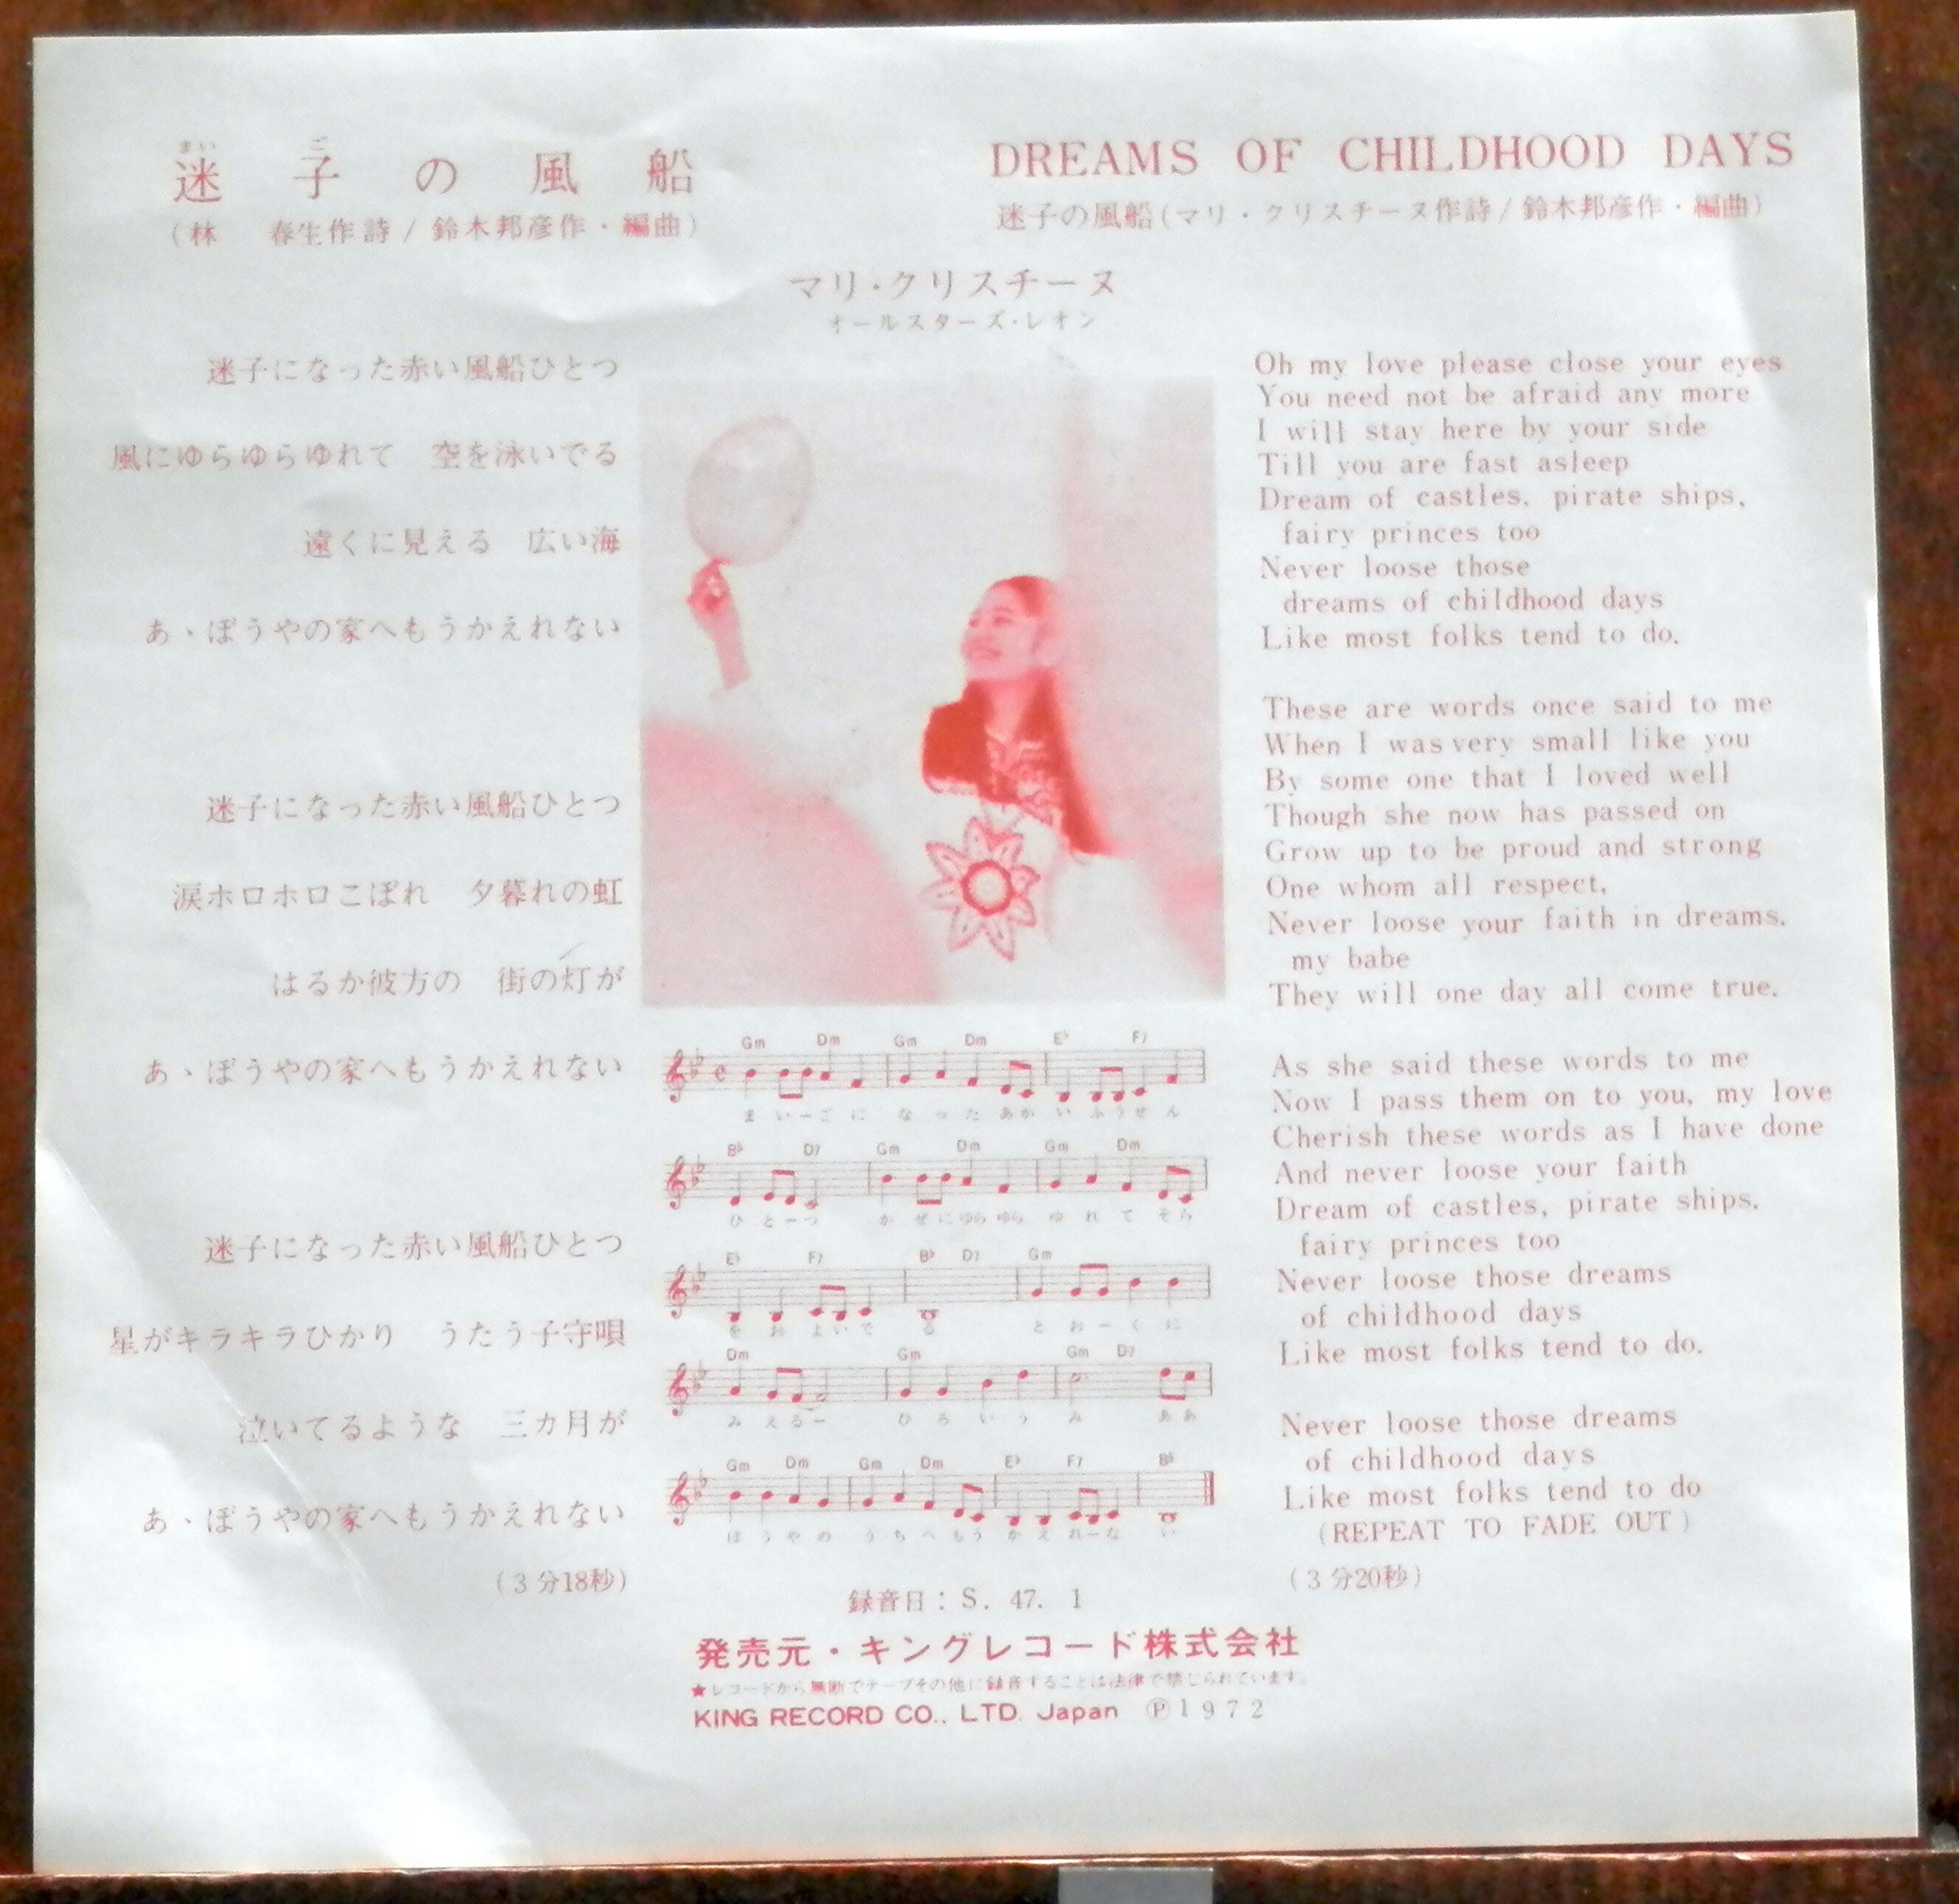 まい ご
迷子の風船
(林 春生作詩/鈴木邦彦作・編曲)
DREAMS OF CHILDHOOD DAYS
迷子の風船(マリ・クリスチーヌ作詩/鈴木邦彦作・編曲)
マリ・クリスチーヌ
オールスターズ・レオン
迷子になった赤い風船ひとつ
風にゆらゆらゆれて 空を泳いでる
遠くに見える 広い海
あゝぼうやの家へもうかえれない
迷子になった赤い風船ひとつ
涙ホロホロこぼれ 夕暮れの虹
はるか彼方の 街の灯が
あゝぼうやの家へもうかえれない
迷子になった赤い風船ひとつ
星がキラキラひかり うたう子守唄
泣いてるような 三カ月が
あゝぼうやの家へもうかえれない
(3分18秒)
Gm Dm Gm Dm E♭ F7
ま い ー ご に な っ た あか い ふ う せ ん
B♭ D7 Gm Dm Gm Dm
ひ と ー つ か ぜ に ゆら ゆら ゆ れ て そ ら
E♭ F7 B♭ D7 Gm
を お よ い で る と お ー く に
Dm Gm Gm D7
み え る ー ひ ろ い う み あ あ
Gm Dm Gm Dm E♭ F7 B♭
ぼ う や の う ち へ も う か え れ ー な い
Oh my love please close your eyes
You need not be afraid any more
I will stay here by your side
Till you are fast asleep
Dream of castles, pirate ships,
fairy princes too
Never loose those
dreams of childhood days
Like most folks tend to do.
These are words once said to me
When I was very small like you
By some one that I loved well
Though she now has passed on
Grow up to be proud and strong
One whom all respect,
Never loose your faith in dreams.
my babe
They will one day all come true.
As she said these words to me
Now I pass them on to you, my love
Cherish these words as I have done
And never loose your faith
Dream of castles, pirate ships.
fairy princes too
Never loose those dreams
of childhood days
Like most folks tend to do.
Never loose those dreams
of childhood days
Like most folks tend to do
(REPEAT TO FADE OUT)
(3分20秒)
録音日：S. 47. 1
発売元・キングレコード株式会社
★レコードから無断でテープその他に録音することは法律で禁じられています。
KING RECORD CO., LTD. Japan Ⓟ1972